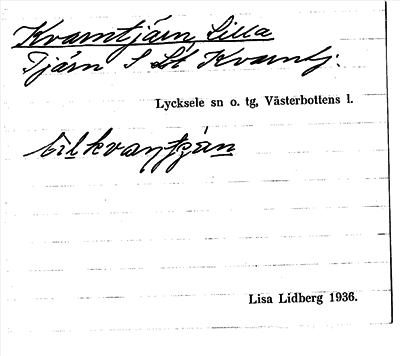 Kvarntjärn, Lilla
Tjärn S St Kvarntj.
Lycksele sn o. tg, Västerbottens l.
Lisa Lidberg 1936.